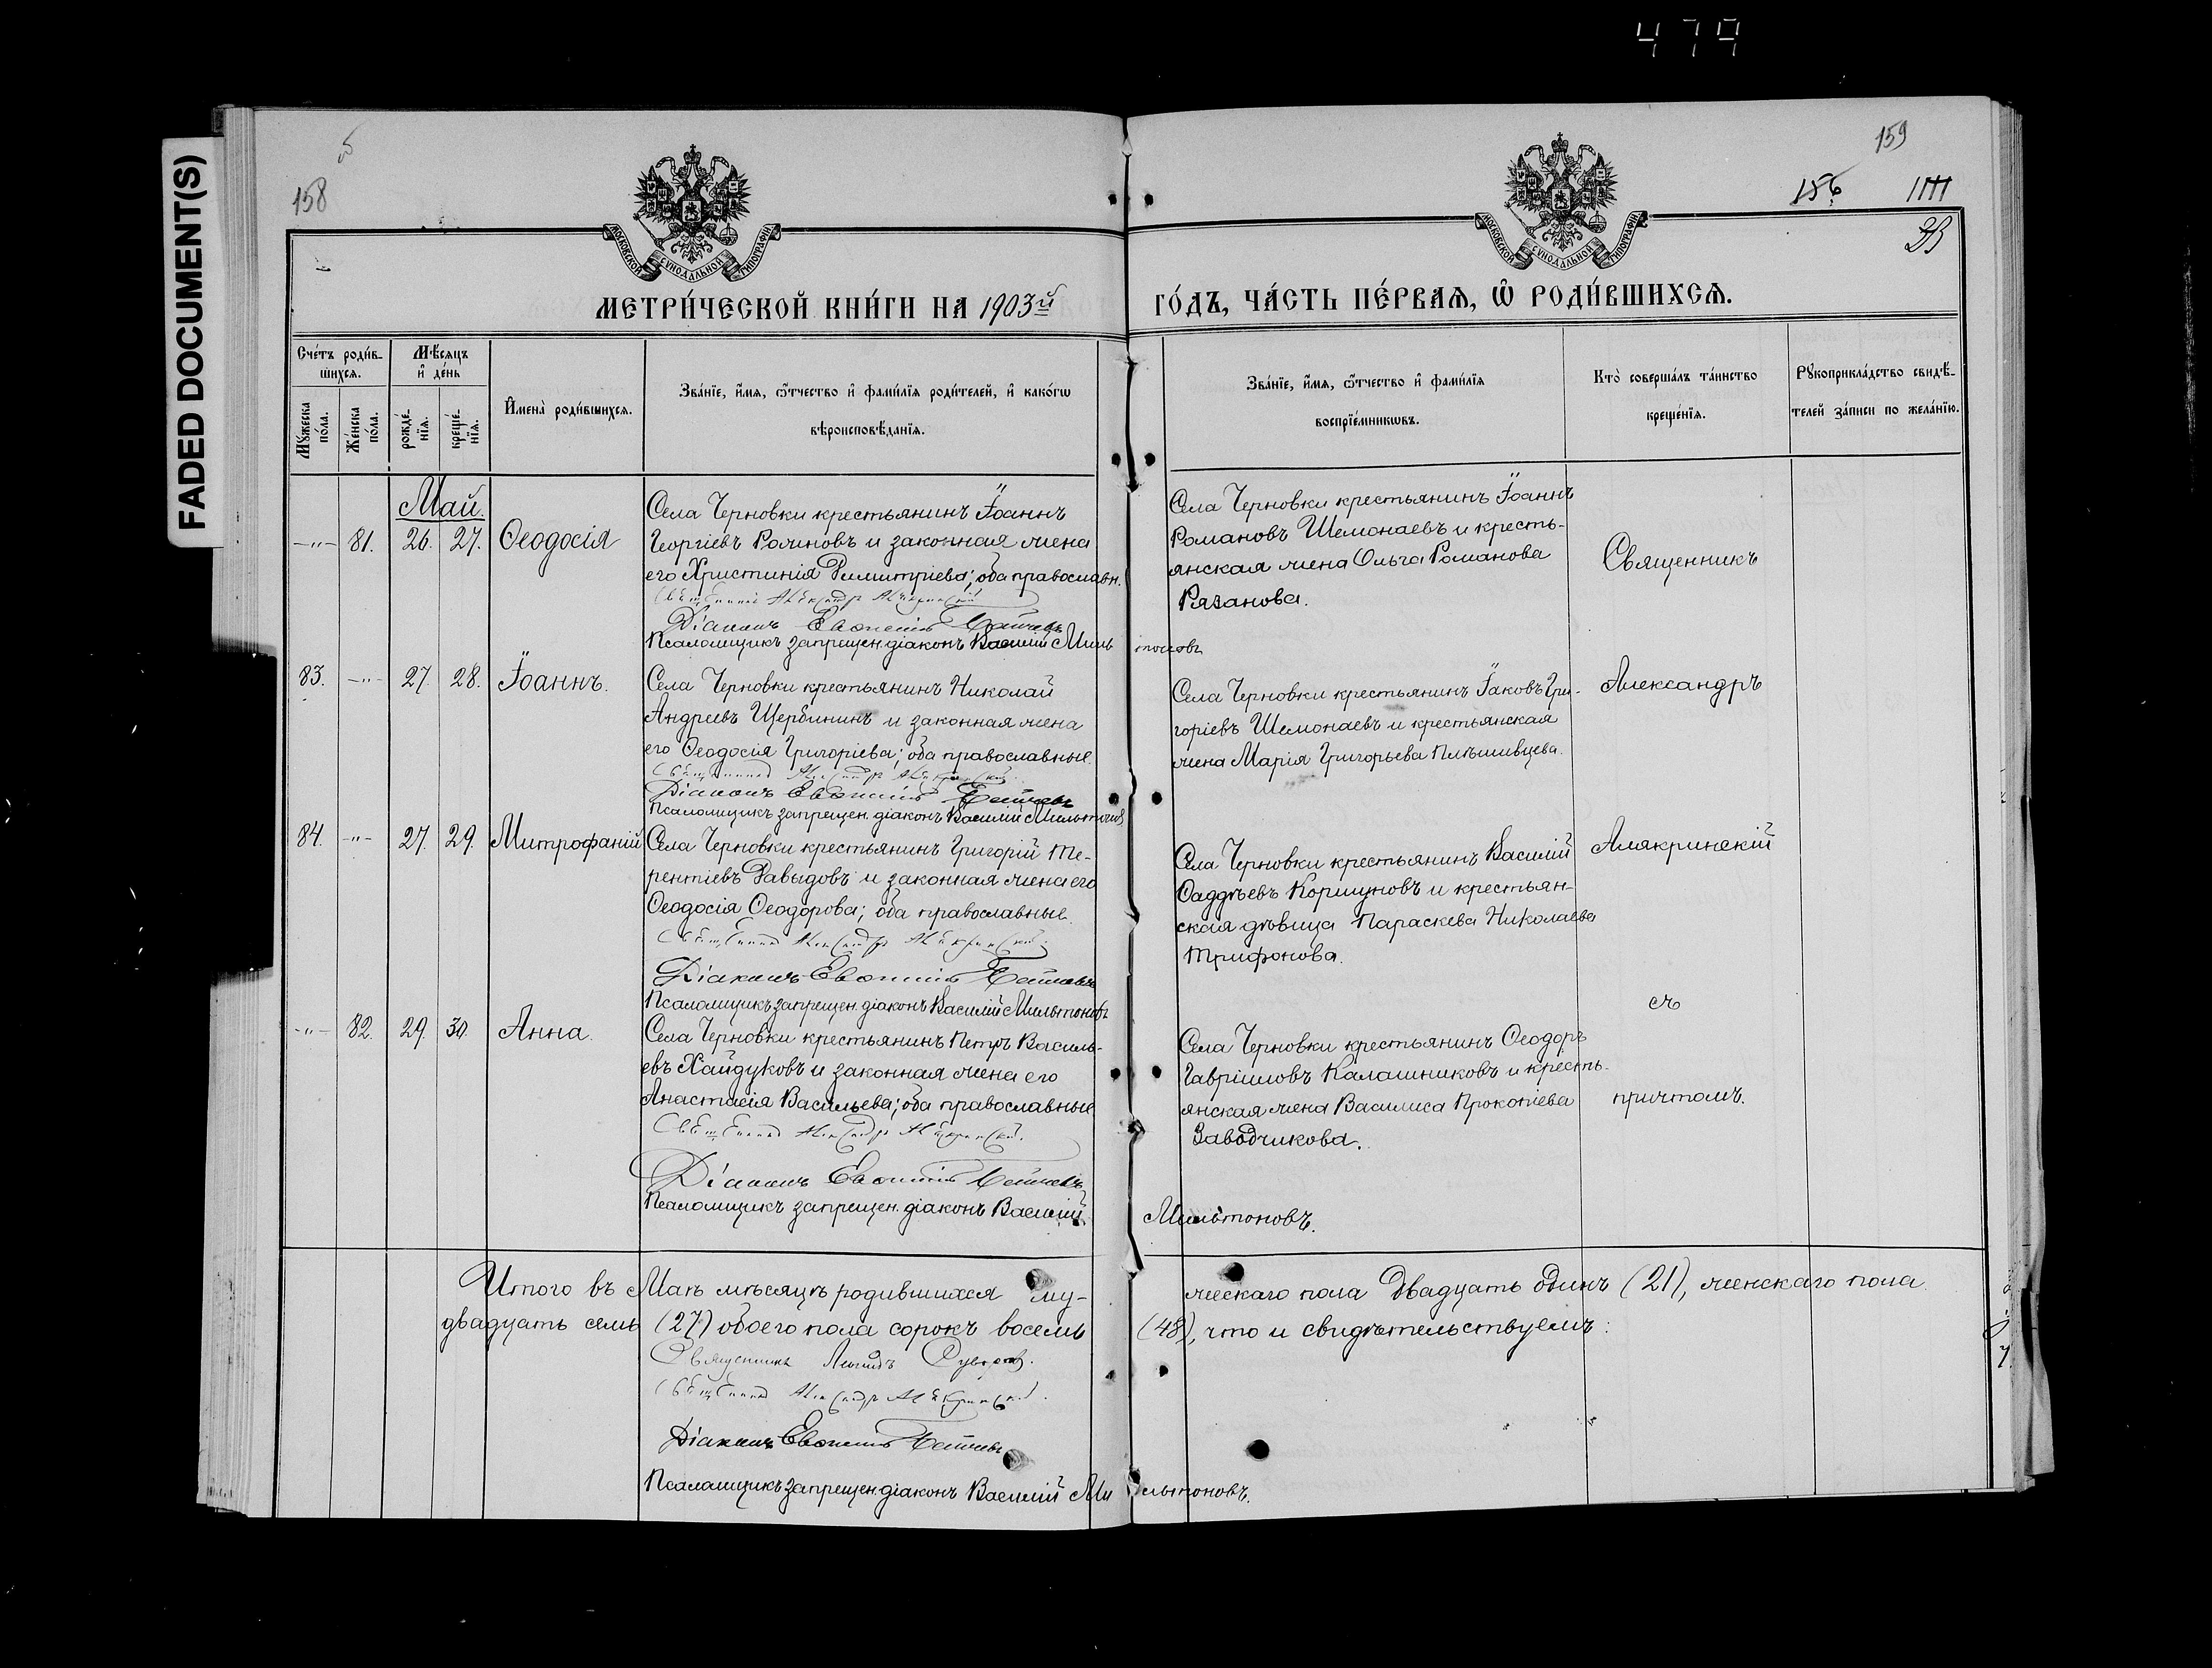 479
FADED DOCUMENT(S)
158
159
156
МОСКОВСКОЙ СѴНОДАЛЬНОЙ ТИПОГРАФІИ
МОСКОВСКОЙ СѴНОДАЛЬНОЙ ТИПОГРАФІИ
МЕТРИ́ЧЕСКОЙ КНИ́ГИ НА 1903й ГО́ДЪ, ЧА́СТЬ ПЕ́РВАЯ, Ѽ РОДИ́ВШИХСЯ.
Сче́тъ роди́в-
шихся.
Мѣ́сяцъ
и҆ де́нь
Мꙋ́жеска по́ла.
Же́нска по́ла.
рожде́-нїя.
креще́-нїя.
И҆мена̀ роди́вшихся.
Зва́нїе, и҆́мя, ѻ҆́тчество и҆ фами́лїя роди́телей, и҆ како́гѡ
вѣроисповѣ́данїя.
Зва́нїе, и҆́мя, ѻ҆́тчество и҆ фами́лїя
воспрїе́мникѡвъ.
Кто̀ соверша́лъ та́инство
креще́нїя.
Рꙋкоприкла́дство свидѣ́-
телей за́писи по жела́нїю.
Май.
-"- 81. 26. 27. Ѳеодосія
Села Черновки крестьянинъ Іоаннъ
Георгіевъ Роминовъ и законная жена
его Христинія Димитріева; оба православн.
Священникъ Александръ Алякринскій
Діаконъ Евѳимій
Псаломщикъ запрещен. діаконъ Василій Мильтоновъ
Села Черновки крестьянинъ Іоаннъ
Романовъ Шемонаевъ и кресть-
янская жена Ольга Романова
Рязанова.
Священникъ
83. -"- 27. 28. Іоаннъ.
Села Черновки крестьянинъ Николай
Андреевъ Щербининъ и законная жена
его Ѳеодосія Григоріева; оба православные.
Священникъ Александръ Алякринскій.
Діаконъ Евѳимій
Псаломщикъ запрещен. діаконъ Василій Мильтоновъ
Села Черновки крестьянинъ Іаковъ Гри-
горіевъ Шемонаевъ и крестьянская
жена Марія Григорьева Плѣшивцева.
Александръ
84. -"- 27. 29. Митрофаній
Села Черновки крестьянинъ Григорій Те-
рентіевъ Давыдовъ и законная жена его
Ѳеодосія Ѳеодорова; оба православные.
Священникъ Александръ Алякринскій.
Діаконъ Евѳимій
Псаломщикъ запрещен. діаконъ Василій Мильтоновъ
Села Черновки крестьянинъ Василій
Ѳаддѣевъ Коршуновъ и крестьян-
ская дѣвица Параскева Николаева
Трифонова.
Алякринскій
съ
-"- 82. 29. 30. Анна.
Села Черновки крестьянинъ Петръ Василь-
евъ Хайдуковъ и законная жена его
Анастасія Васильева; оба православные
Священникъ Александръ Алякринскій.
Діаконъ Евѳимій
Псаломщикъ запрещен. діаконъ Василій Мильтоновъ.
Села Черновки крестьянинъ Ѳеодоръ
Гавріиловъ Калашниковъ и кресть-
янская жена Василиса Прокопіева
Заводчикова.
причтомъ.
Итого въ Маѣ мѣсяцѣ родившихся му-жескаго пола двадцать одинъ (21), женскаго пола
двадцать семь (27) обоего пола сорокъ восемь (48), что и свидѣтельствуемъ:
Священникъ
Священникъ Александръ Алякринскій.
Діаконъ Евѳимій
Псаломщикъ запрещен. діаконъ Василій Мильтоновъ.